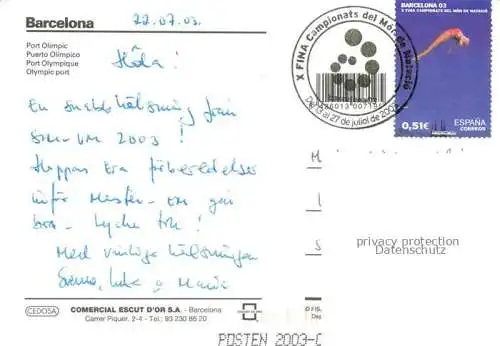 Barcelona
22.07.03.
Port Olímpic
Puerto Olímpico
Port Olympique
Olympic port
Hola!
En snabb hälsning från
sim-VM 2003!
Hoppas Era förberedelser
inför Master-EM går
bra - Lycka till!
Med vänliga hälsningar
X FINA Campionats del Món de Natació
Del 13 al 27 de juliol de 2003
BARCELONA 03
X FINA CAMPIONATS DEL MÓN DE NATACIÓ
0,51€
ESPAÑA
CORREOS
privacy protection
Datenschutz
CEDOSA
COMERCIAL ESCUT D'OR S.A. - Barcelona
Carrer Piquer, 2-4 - Tel.: 93 230 86 20
POSTEN 2003-0